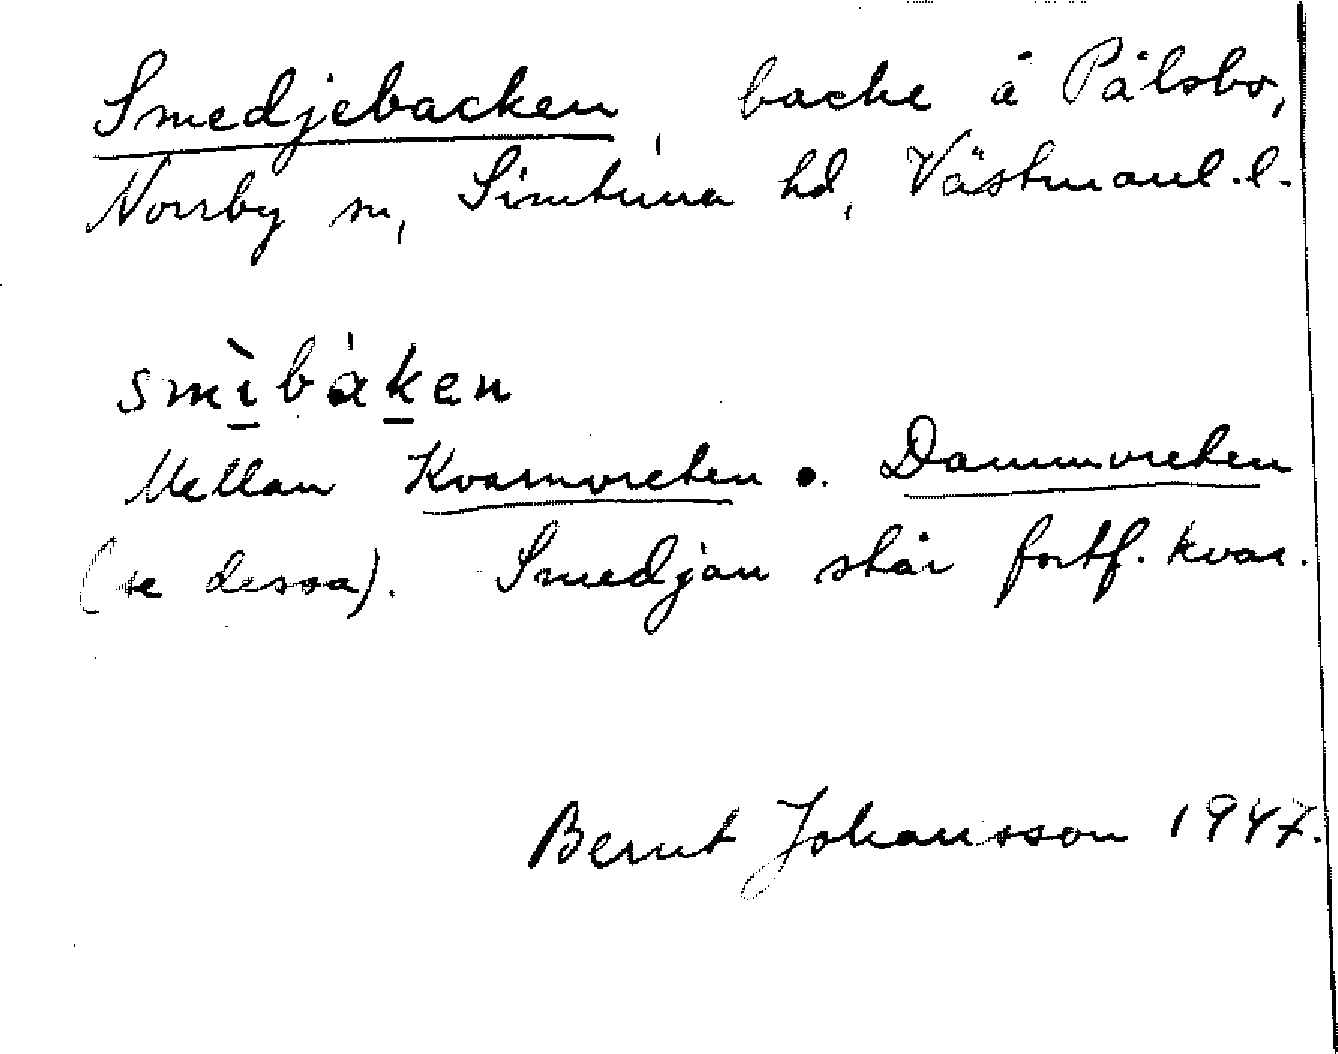 Smedjebacken, backe å Pålsbo,
Norrby sn, Simtuna hd, Västmanl. l.
smìbáken
Mellan Kvarnvreten o. Dammvreten
(se dessa). Smedjan står fortf. kvar.
Bernt Johansson 1947.